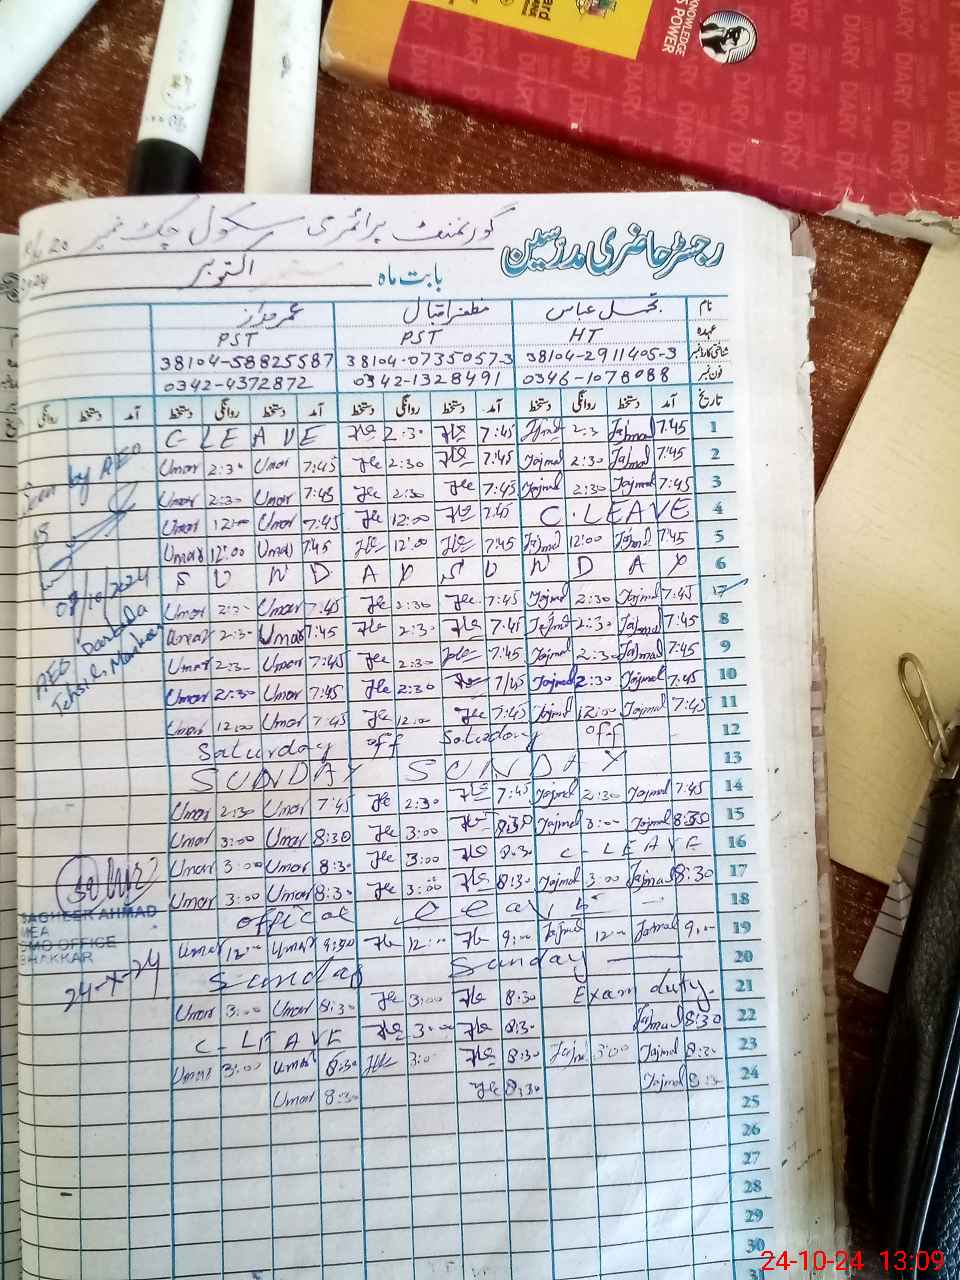 KNOWLEDGE
IS POWER
DIARY DIARY DIARY DIARY DIARY
رجسٹر حاضری مدرسین
گورنمنٹ پرائمری سکول چک نمبر 20
بابت ماہ اکتوبر
نام تجمل عباس مظفر اقبال عمر دراز
عہدہ HT PST PST
شناختی کارڈ نمبر 38104-2911405-3 38104-0735057-3 38104-58825587
فون نمبر 0346-1078088 0342-1328491 0342-4372872
تاریخ آمد دستخط روانگی دستخط آمد دستخط روانگی دستخط آمد دستخط روانگی دستخط آمد دستخط روانگی
C LEAVE 2:30 7:45 Tajmal 2:3 Tajmal 7:45 1
Umar 2:30 Umar 7:45 2:30 7:45 Tajmal 2:30 Tajmal 7:45 2
Umar 2:30 Umar 7:45 2:30 7:45 Tajmal 2:30 Tajmal 7:45 3
Umar 12:00 Umar 7:45 12:00 7:45 C. LEAVE 4
Umar 12:00 Umar 7:45 12:00 7:45 Tajmal 12:00 Tajmal 7:45 5
SUNDAY SUNDAY 6
Umar 2:30 Umar 7:45 2:30 7:45 Tajmal 2:30 Tajmal 7:45 7
2:30 Umar 7:45 2:30 7:45 Tajmal 2:30 Tajmal 7:45 8
Umar 2:30 Umar 7:45 2:30 7:45 Tajmal 2:30 Tajmal 7:45 9
Umar 2:30 Umar 7:45 2:30 7:45 Tajmal 2:30 Tajmal 7:45 10
Umar 12:00 Umar 7:45 12:00 7:45 Tajmal 12:00 Tajmal 7:45 11
Saturday off Saturday off 12
SUNDAY SUNDAY 13
Umar 2:30 Umar 7:45 2:30 7:45 Tajmal 2:30 Tajmal 7:45 14
Umar 3:00 Umar 8:30 3:00 8:30 Tajmal 3:00 Tajmal 8:30 15
Umar 3:00 Umar 8:30 3:00 8:30 C-LEAVE 16
Umar 3:00 Umar 8:30 3:00 8:30 Tajmal 3:00 Tajmal 8:30 17
18
Umar 12:00 Umar 9:00 12:00 9:00 Tajmal 12:00 Tajmal 9:00 19
Sunday Sunday 20
Umar 3:00 Umar 8:30 3:00 8:30 Exam duty. 21
C-LEAVE 3:00 8:30 Tajmal 8:30 22
Umar 3:00 Umar 8:30 3:00 8:30 Tajmal 3:00 Tajmal 8:30 23
Umar 8:30 8:30 Tajmal 8:30 24
25
26
27
28
29
30
Seen by AEO
09/10/2024
AEO Darbala
Tehsil. Mankera
SAGHEER AHMAD
MEA
DMO OFFICE
BHAKKAR
24-X-24
24-10-24 13:09